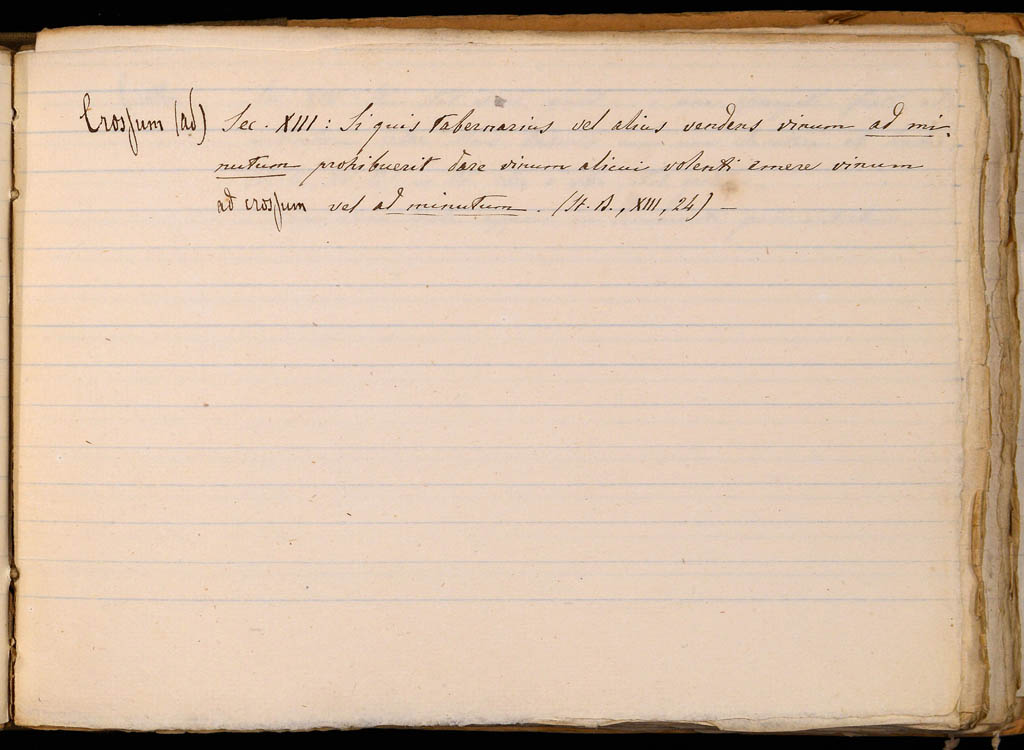 Crossum (ad) Sec. XIII: Si quis tabernarius vel alius vendens vinum ad mi-
nutum prohibuerit dare vinum alicui volenti emere vinum
ad crossum vel ad minutum. (St. B., XIII, 24) —